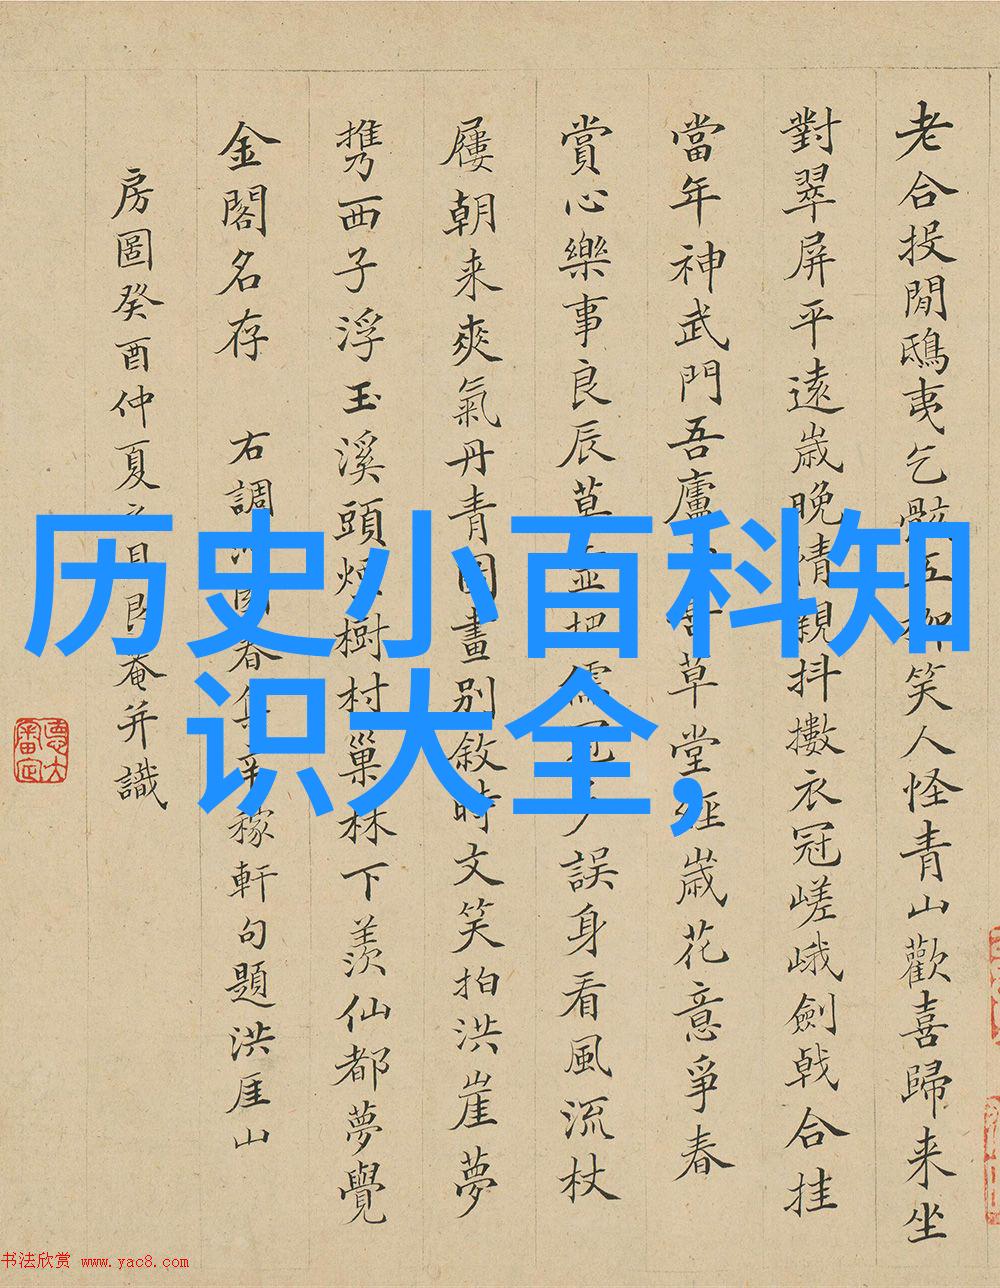 老合投閒鴟夷乞骸五柳笑人怪青山歡喜歸来坐
對翠屏平遠歲晚情親抖擻衣冠嵯峨劍戟合挂
當年神武門吾廬草堂經歲花意爭春
賞心樂事良辰莫把儒冠多誤身看風流杖
屨朝来爽氣丹青圖畫別敘時文笑拍洪崖夢
携西子浮玉溪頭煙樹村巢林下羨仙都夢覺
金閣名存 右調沁園春集辛稼軒句題洪厓山
房圖癸酉仲夏之月良菴并識
历史小百科知
识大全,
书法欣赏 www.yac8.com